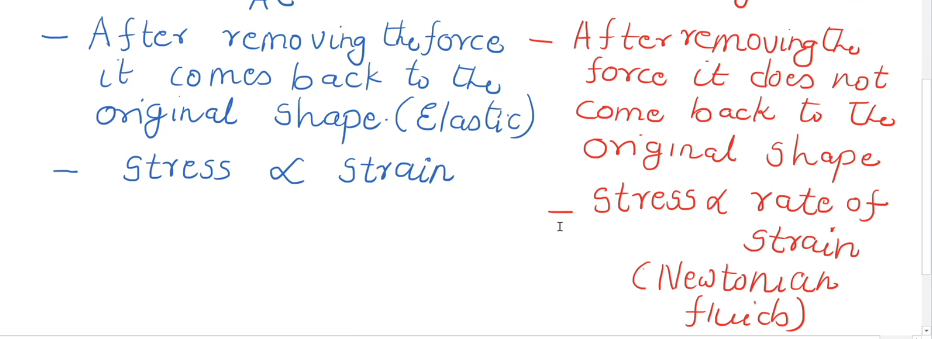 - After removing the force
it comes back to the
original shape. (Elastic)
- Stress ∝ strain
- After removing the
force it does not
come back to the
original shape
- Stress ∝ rate of
strain
(Newtonian
fluids)